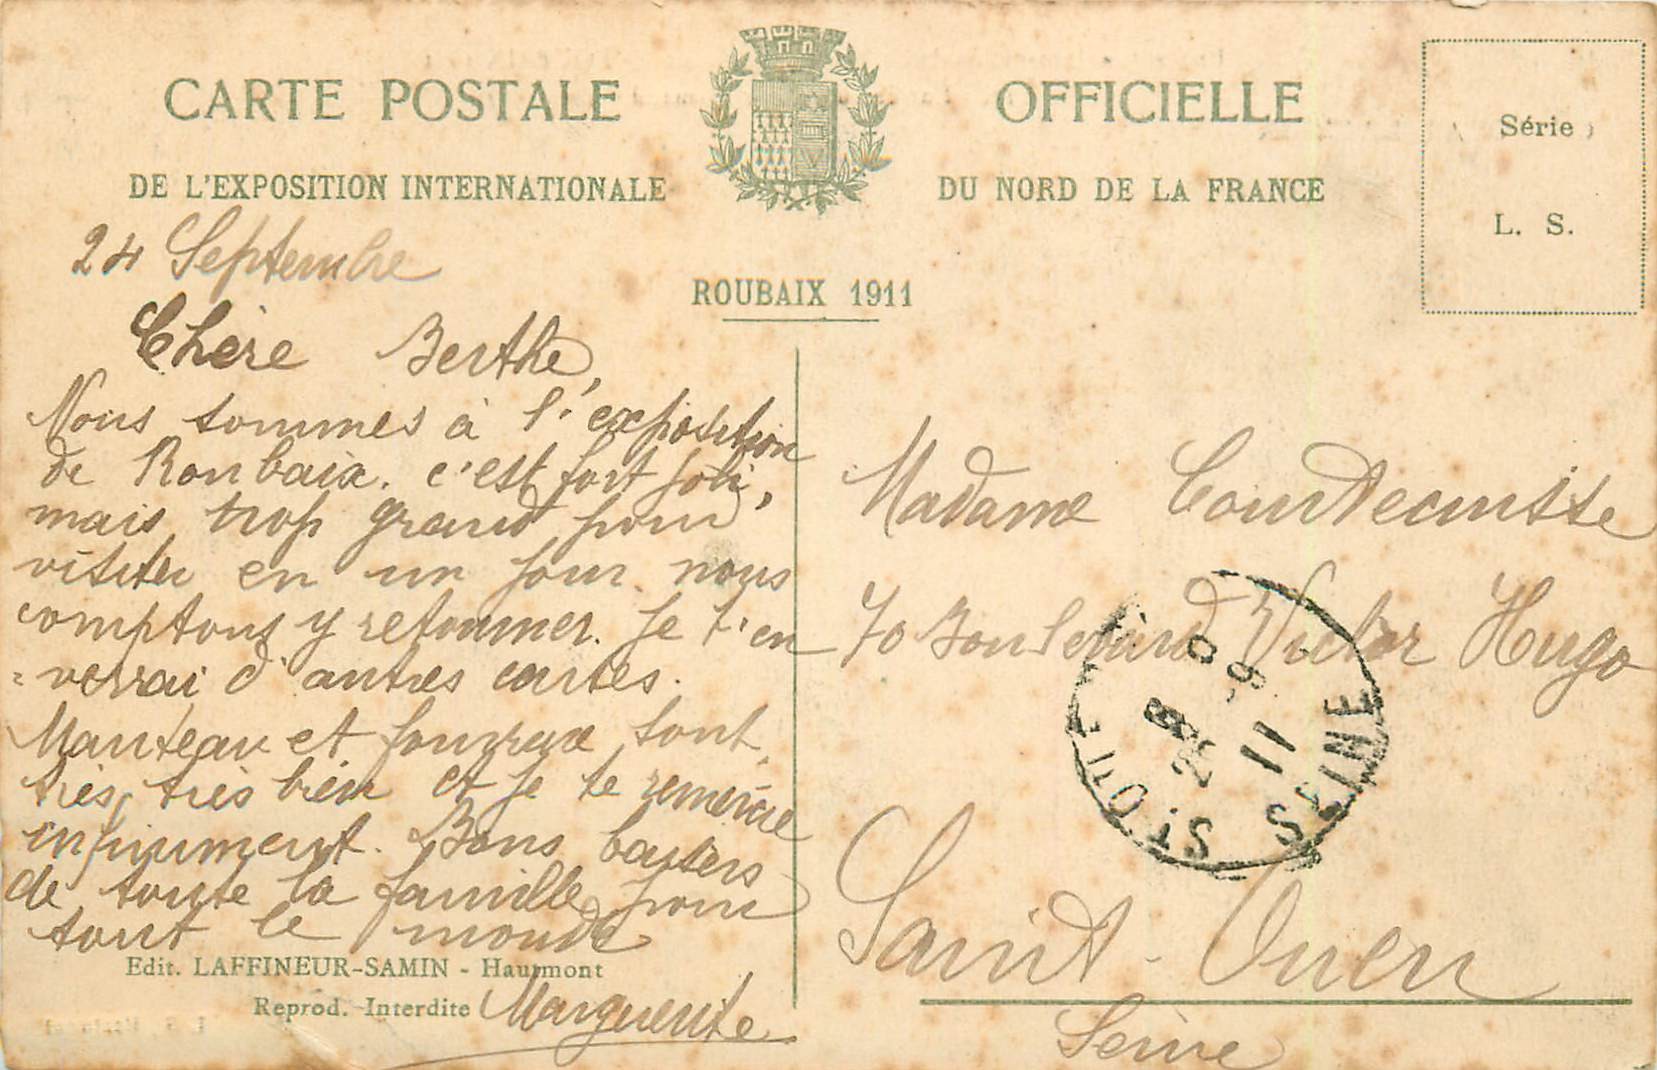 CARTE POSTALE OFFICIELLE
DE L'EXPOSITION INTERNATIONALE DU NORD DE LA FRANCE
ROUBAIX 1911
Série
L. S.
24 Septembre
Chère Berthe,
Nous sommes à l'exposition
de Roubaix. c'est fort joli,
mais trop grand pour
visiter en un jour nous
comptons y retourner. Je t'en
=verrai d'autres cartes.
Manteau et fourrure sont
très, très bien et je te remercie
infiniment. Bons baisers
de toute la famille pour
tout le monde
Marguerite
Edit. LAFFINEUR-SAMIN - Hautmont
Reprod. Interdite
Madame
70 Boulevard Victor Hugo
Saint-Ouen
Seine
ST OUEN
SEINE
25
9
11